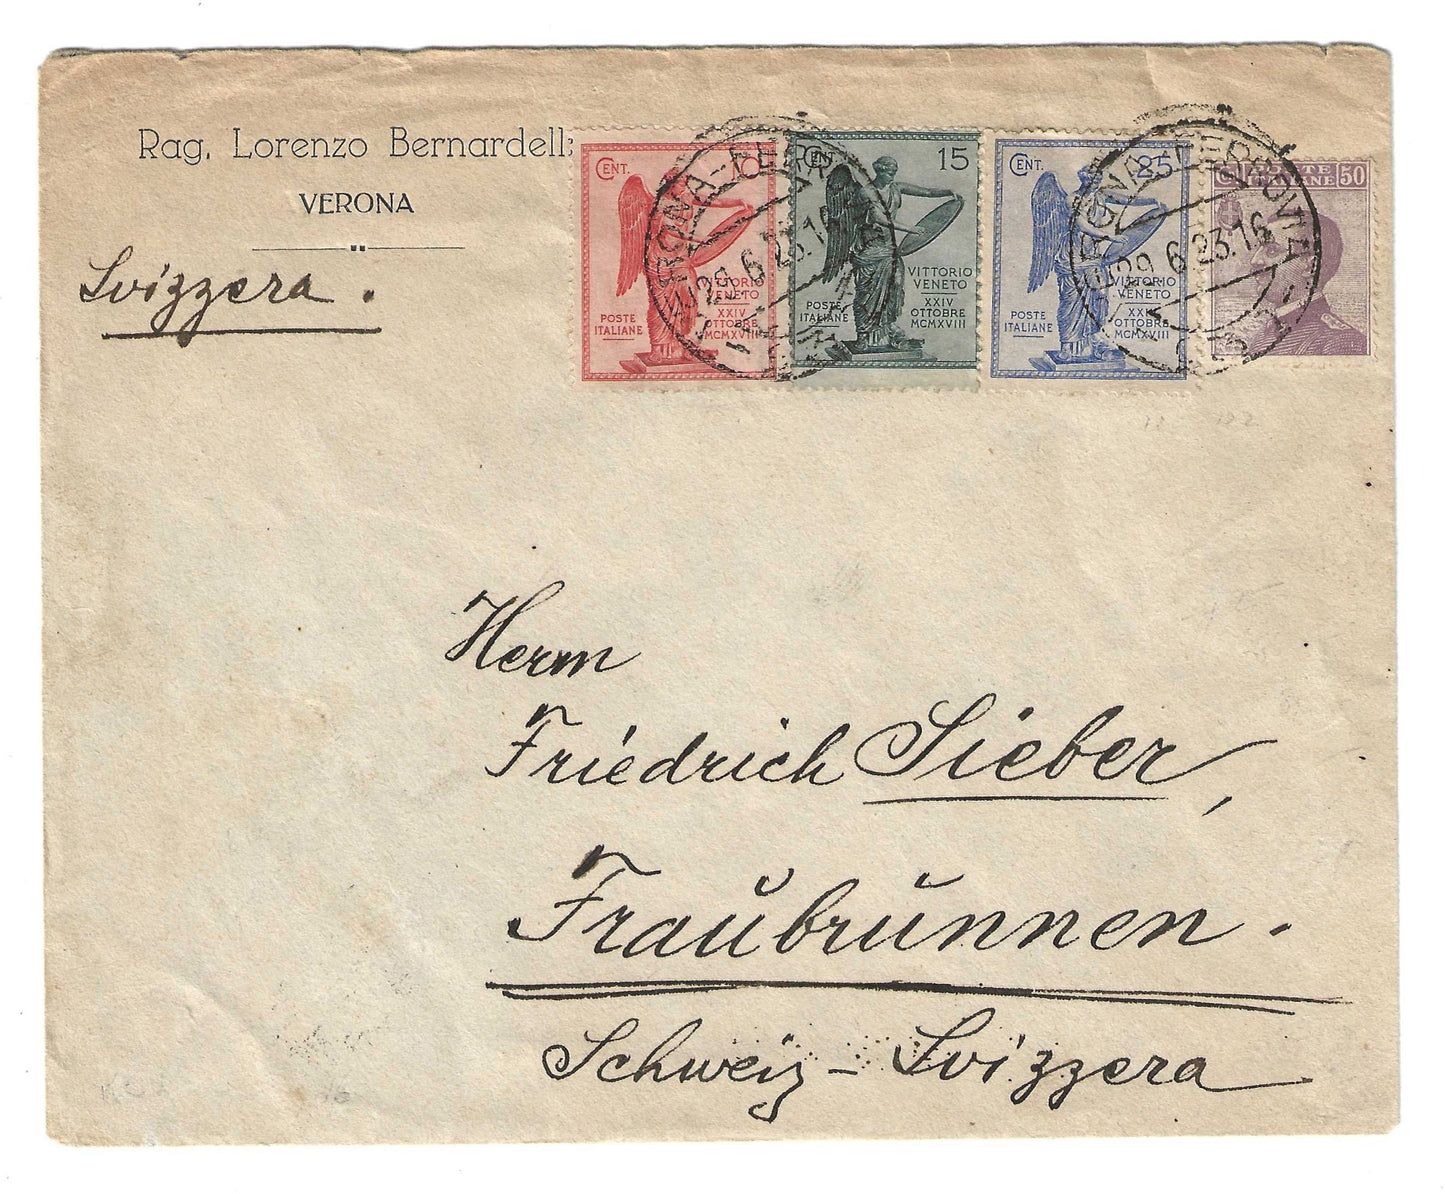 Rag. Lorenzo Bernardelli
VERONA
Svizzera.
CENT. 10
VITTORIO
VENETO
POSTE
ITALIANE
XXIV
OTTOBRE
MCMXVIII
CENT. 15
VITTORIO
VENETO
POSTE
ITALIANE
XXIV
OTTOBRE
MCMXVIII
CENT. 25
VITTORIO
VENETO
POSTE
ITALIANE
XXIV
OTTOBRE
MCMXVIII
POSTE
ITALIANE 50
VERONA-FERROVIA
29.6.23.16
VERONA-FERROVIA
29.6.23.16
Herrn
Friedrich Sieber,
Fraubrunnen.
Schweiz - Svizzera